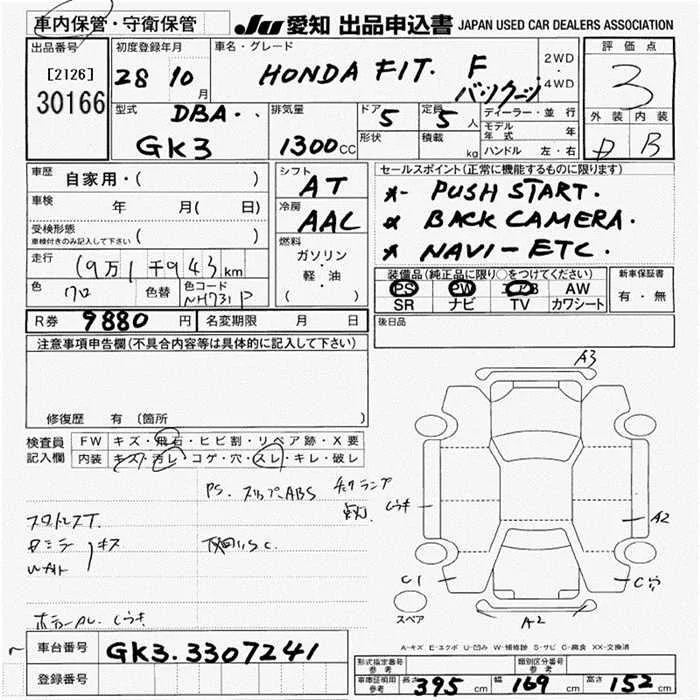 車内保管・守衛保管
JU 愛知 出品申込書 JAPAN USED CAR DEALERS ASSOCIATION
出品番号
[2126]
30166
初度登録年月
28 10 月
車名・グレード
HONDA FIT. F
パッケージ
2WD
・
4WD
評価点
3
外装 内装
B
型式
DBA・・
GK3
排気量
1300 CC
ドア
5
形状
定員
5 人
積載
kg
ディーラー・並行
モデル年式 年
ハンドル 左・右
車歴
自家用・( )
車検
年 月( 日)
受検形態
車検付きのみ記入して下さい ( )
走行
19万1千943km
色
クロ
色替
色コード
NH731P
シフト
AT
冷房
AAC
燃料
ガソリン
・
軽・油
( )
セールスポイント(正常に機能するものに限ります)
*- PUSH START.
* BACK CAMERA.
* NAVI-ETC.
装備品(純正品に限り○をつけてください)
PS PW エアB AW
SR ナビ TV カワシート
新車保証書
有・無
R券 9880 円
名変期限 月 日
後日品
注意事項申告欄(不具合内容等は具体的に記入して下さい)
修復歴 有 〔箇所 〕
検査員
記入欄
FW キズ・飛石・ヒビ割・リペア跡・X要
内装 キズ・汚レ・コゲ・穴・スレ・キレ・破レ
PS. スリップ、ABS チェックランプ
A3
A2
C1
A2
スペア
A-キズ E-エクボ U-凹み W-補修跡 S-サビ C-腐食 XX-交換済
車台番号
GK3.3307241
登録番号
形式指定番号
参考
類別区分番号
参考
車庫証明用
参考
長さ 395 cm
幅 169 cm
高さ 152 cm